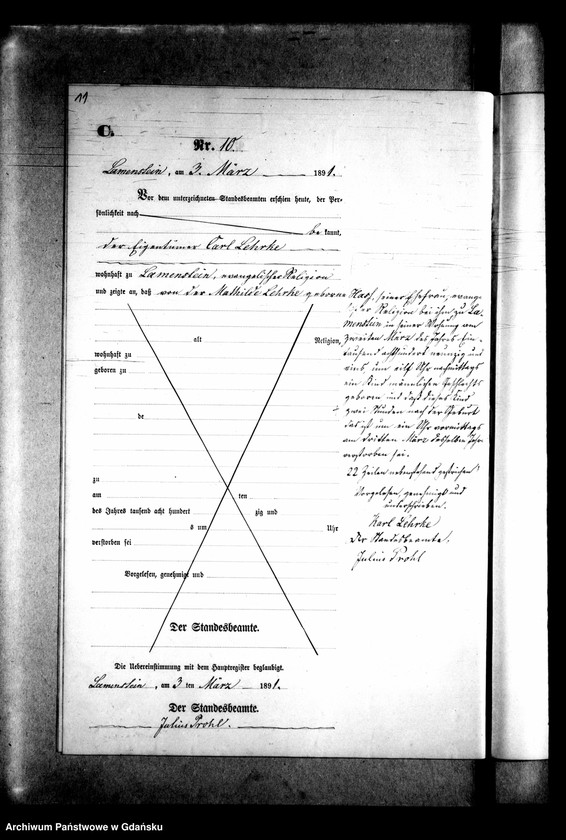 11
C.
Nr. 10.
Lamenstein, am 3. März 1891.
Vor dem unterzeichneten Standesbeamten erschien heute, der Per-
sönlichkeit nach
be kannt,
der Eigentümer Carl Lehrke
wohnhaft zu Lamenstein, evangelischer Religion
und zeigte an, daß von der Mathilde Lehrke geborene
Haß, seiner Ehefrau, evange-
lischer Religion bei ihm zu La-
menstein in seiner Wohnung am
zweiten März des Jahres Ein-
tausend achthundert neunzig und
eins, um eilf Uhr nachmittags
ein Kind männlichen Geschlechts
geboren und daß dieses Kind
zwei Stunden nach der Geburt
das ist um ein Uhr vormittags
am dritten März desselben Jahres
verstorben sei.
22 Zeilen nebenstehend gestrichen
Vorgelesen, genehmigt und
unterschrieben.
Karl Lehrke
Der Standesbeamte.
Julius Prohl
alt Religion,
wohnhaft zu
geboren zu
de
zu
am ten
des Jahres tausend acht hundert zig und
s um Uhr
verstorben sei
Vorgelesen, genehmigt und
Der Standesbeamte.
Die Uebereinstimmung mit dem Hauptregister beglaubigt.
Lamenstein, am 3 ten März 1891.
Der Standesbeamte.
Julius Prohl.
Archiwum Państwowe w Gdańsku